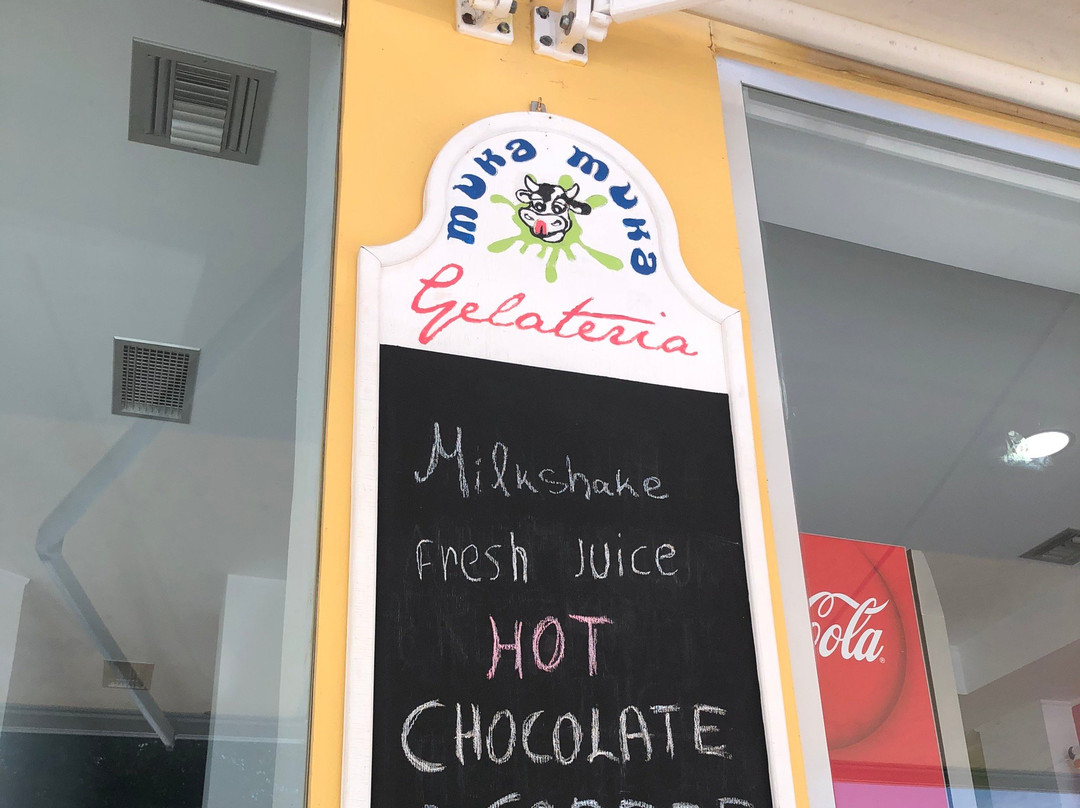 muka muka
Gelateria
Milkshake
Fresh Juice
HOT
CHOCOLATE
Cola